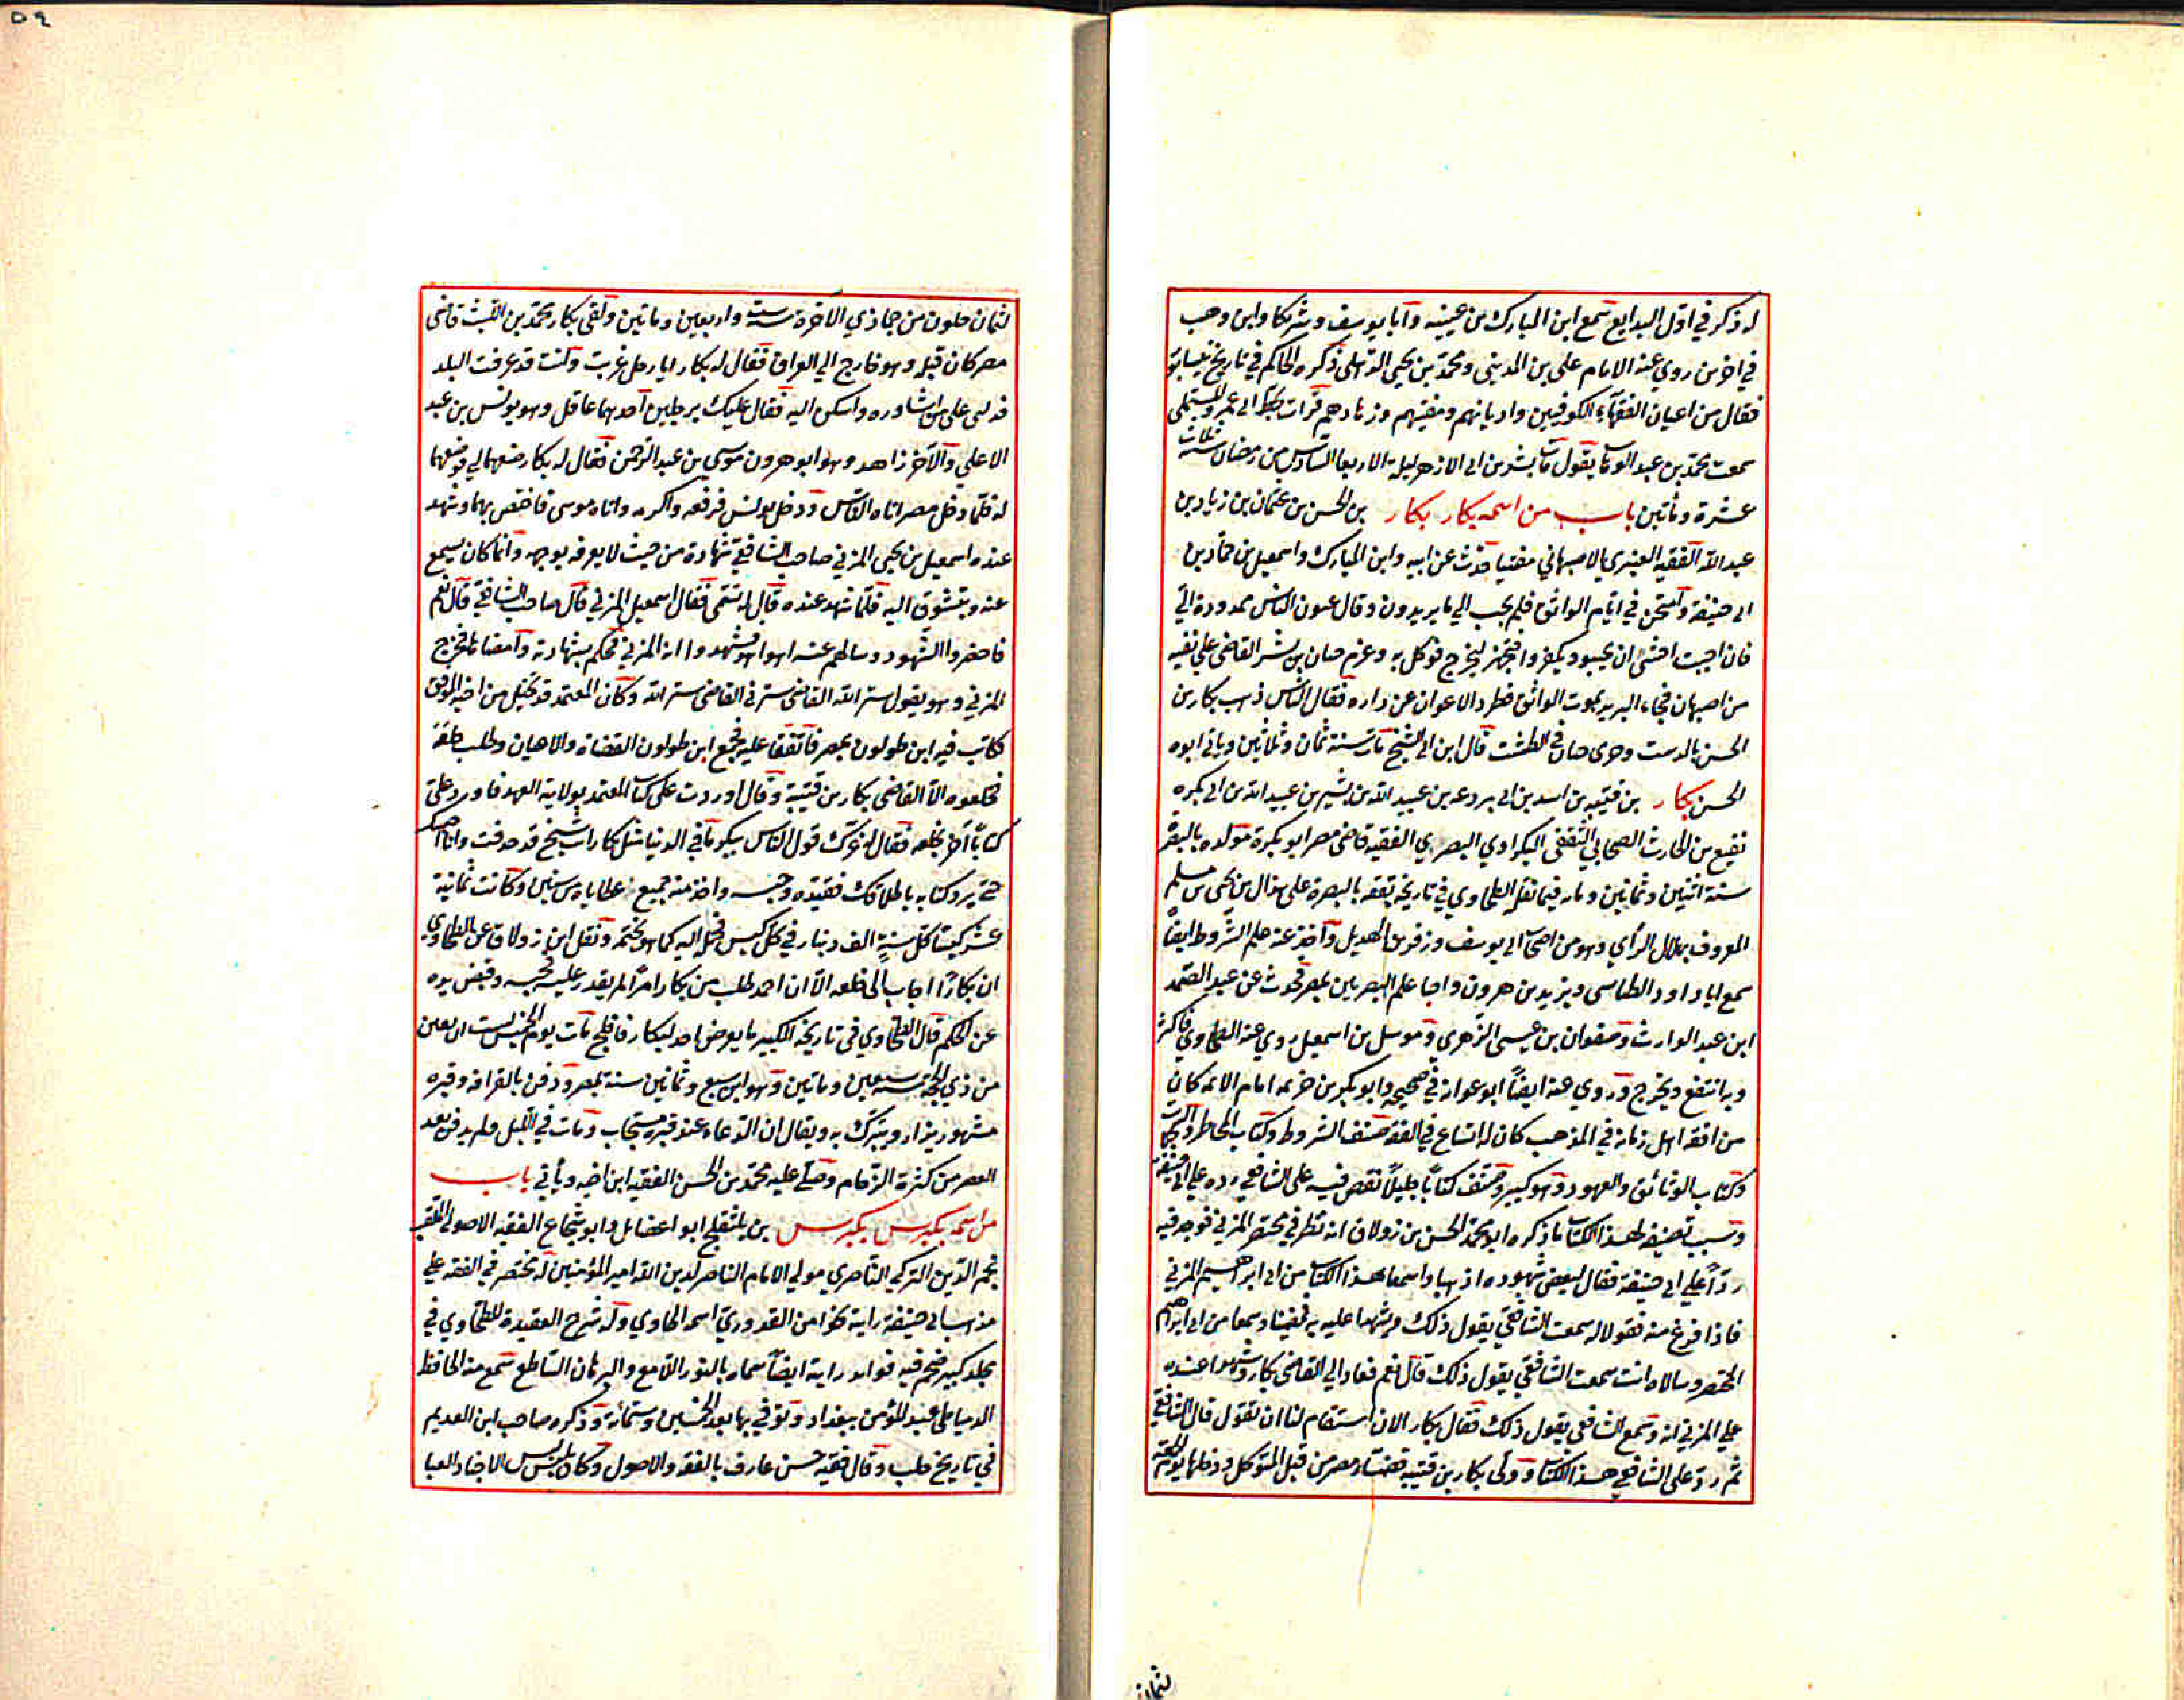 له ذكر في اول البدايع سمع ابن المبارك بن عيينه وابا يوسف وشريكا وابن وهب
في اخرين روي عنه الامام علي بن المديني ومحمد بن يحيى الذهلي ذكره الحاكم في تاريخ نيسابور
فقال من اعيان الفقهاء الكوفيين واديانهم ومفتيهم وزهادهم قرات بخط ابي عمرو المستملي
سمعت محمد بن عبد الوهاب يقول مات بشر بن ابي الازهر ليلة الاربعا السادس من رمضان سنة ثلاث
عشرة ومأتين باب من اسمه بكار بكار بن الحسن بن عثمان بن زياد بن
عبد الله الفقيه العنبري بالاصبهاني مفتيا حدث عن ابيه وابن المبارك واسمعيل بن حماد بن
ابي حنيفة وامتحن في ايام الواثق فلم يجب الي ما يريدون وقال عيون الناس ممدودة الي
فان اجبت اخشى ان يجيبوا ويكفروا فتجهز ليخرج فوكل به وعزم حيان بن بشر القاضي علي نفيه
من اصبهان فجاء البريد بموت الواثق فطرد الاعوان عن داره فقال الناس ذهب بكار بن
الحسن بالدست وخرى حيان في الطشت قال ابن ابي الشيخ مات سنة ثمان وثلاثين وياتي ابوه
الحسن بكار بن قتيبه بن اسد بن ابي بردعه بن عبيد الله بن بشير بن عبيد الله بن ابي بكره
نفيع بن الحارث الصحابي الثقفي البكراوي البصري الفقيه قاضي مصر ابو بكرة مولده بالبصرة
سنة اثنتين وثمانين ومايه فيما نقله الطحاوي في تاريخه تفقه بالبصرة على هلال بن يحيى بن مسلم
المعروف بهلال الرأي وهو من اصحاب ابي يوسف وزفر بن الهديل وأخذ عنه علم الشروط ايضا
سمع ابا داود الطيالسي ويزيد بن هرون واحيا علم البصريين بمصر فحدث عن عبد الصمد
ابن عبد الوارث وصفوان بن عيسى الزهري وموسل بن اسمعيل روي عنه الطحاوي فاكثر
وبه انتفع وتخرج وروي عنه ايضا ابو عوانه في صحيحه وابو بكر بن خزيمه امام الائمه كان
من افقه اهل زمانه في المذهب كان له اتساع في الفقه صنف الشروط وكتاب المحاضر والسجلات
وكتاب الوثائق والعهود وهو كبير وصنف كتابا جليلا نقض فيه على الشافعي رده على ابي حنيفة
وسبب تصنيفه لهذا الكتاب ما ذكره ابو محمد الحسن بن زولاق انه نظر في مختصر المزني فوجد فيه
ردا على ابي حنيفة فقال لبعض شهوده اذهبا واسمعا هذا الكتاب من ابي ابراهيم المزني
فاذا فرغ منه فقولا له سمعت الشافعي يقول ذلك واشهدا عليه به فمضيا وسمعا من ابي ابراهيم
المختصر وسالاه انت سمعت الشافعي يقول ذلك قال نعم فعادا الي القاضي بكار وشهدا عنده
علي المزني انه سمع الشافعي يقول ذلك فقال بكار الان استقام لنا ان نقول قال الشافعي
ثم رد على الشافعي هذا الكتاب وولى بكار بن قتيبه قضاء مصر من قبل المتوكل ودخلها يوم الجمعة
لثمان
٥٩
لثمان خلون من جمادي الاخرة سنة ست واربعين وماتين ولقي بكار محمد بن الليث قاضي
مصر كان قبله وهو خارج الي العراق فقال له بكار انا رجل غريب وانت قد عرفت البلد
فدلني على من اشاوره واسكن اليه فقال عليك برجلين احدهما عاقل وهو يونس بن عبد
الاعلى والآخر زاهد وهو ابو هرون موسى بن عبد الرحمن فقال له بكار صفهما لي فوصفهما
له فلما دخل مصر اتاه الناس ودخل يونس فرفعه واكرمه واتاه موسى فاختص بهما وشهد
عنده اسمعيل بن يحيى المزني صاحب الشافعي شهادة من حيث لا يعرفه بوجهه وانما كان يسمع
عنه ويتشوق اليه فلما شهد عنده قال له تسمى فقال اسمعيل المزني قال صاحب الشافعي قال نعم
فاحضروا الشهود وسالهم عنه اهو اهو فشهدوا انه المزني فحكم بشهادته وامضاها فخرج
المزني وهو يقول ستر الله القاضي سترني القاضي ستره الله وكان المعتمد قد تخيل من اخيه الموفق
فكاتب فيه ابن طولون بمصر فاتفقا عليه فجمع ابن طولون القضاة والاعيان وطلب خلعه
فخلعوه الا القاضي بكار بن قتيبة وقال اوردت على كتاب المعتمد بولاية العهد فاورد علي
كتابا آخر بخلعه فقال له غرك قول الناس بكير ما في الدنيا مثل بكار انت شيخ قد خرفت وانا احبسك
حتى يرد كتابه باطلاقك فقيده وحبسه واخذ منه جميع عطاياه من سنين وكانت ثمانية
عشر كيسا كل سنة الف دينار في كل كيس فحمل اليه كما هو بختمه ونقل ابن زولاق عن الطحاوي
ان بكارا اجاب الى خلعه الا ان احمد طلب من بكار امرا لم يقدر عليه فحبسه وقبض يده
عن الحكم قال الطحاوي في تاريخه الكبير ما يعرض احد لبكار فافلح مات يوم الخميس لست ان بقين
من ذي الحجة سنة سبعين وماتين وهو ابن سبع وثمانين سنة بمصر ودفن بالقرافة وقبره
مشهور يزار ويتبرك به ويقال ان الدعاء عند قبره مستجاب ومات في الليل فلم يدفن بعد
العصر من كثرة الزحام وصلى عليه محمد بن الحسن الفقيه ابن اخيه ويأتي باب
من اسمه بكبرس بكبرس بن يلنقلج ابو الفضايل وابو شجاع الفقيه الاصولي الملقب
نجم الدين التركي الناصري مولي الامام الناصر لدين الله امير المؤمنين له مختصر في الفقه علي
مذهب ابي حنيفة رايته نحوا من القدوري اسمه الحاوي وله شرح العقيدة للطحاوي في
مجلد كبير ضخم فيه فوايد رايته ايضا سماه بالنور اللامع والبرهان الساطع سمع منه الحافظ
الدمياطي عبد المؤمن ببغداد وتوفي بها بعد الخمسين وستمائة وذكره صاحب ابن العديم
في تاريخ حلب وقال فقيه حسن عارف بالفقه والاصول وكان يلبس الاجناد العبا